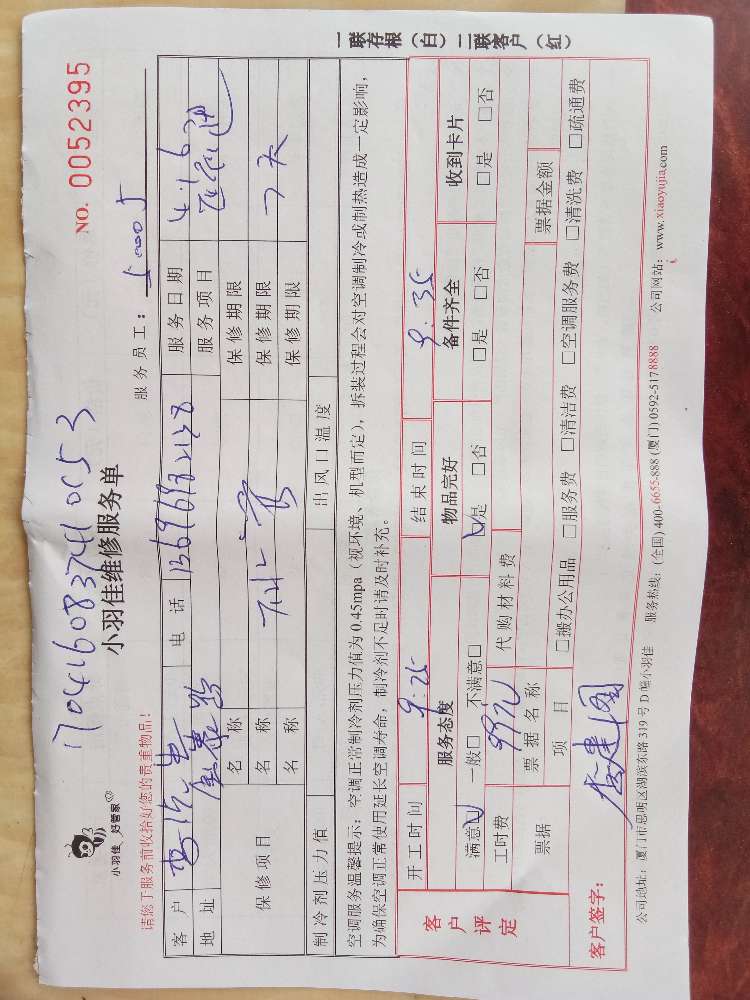 1704160837410053
一联存根（白）二联客户（红）
小羽佳 好管家
小羽佳维修服务单
NO. 0052395
请您于服务前收拾好您的贵重物品!
服务员工:
客户 电话 服务日期 4.16
地址 服务项目
保修项目 名称 保修期限
名称 保修期限 7天
名称 保修期限
制冷剂压力值 出风口温度
空调服务温馨提示：空调正常制冷剂压力值为0.45mpa（视环境、机型而定），拆装过程会对空调制冷或制热造成一定影响，
为确保空调正常使用延长空调寿命，制冷剂不足时请及时补充。
客户评定
开工时间 9:25 结束时间 9:35
服务态度 物品完好 备件齐全 收到卡片
满意☑ 一般□ 不满意□ ☑是 □否 □是 □否 □是 □否
工时费 99元 代购材料费
票据 票据名称 票据金额
项目 □搬办公用品 □服务费 □清洁费 □空调服务费 □清洗费 □疏通费
客户签字:
公司地址：厦门市思明区湖滨东路319号D幢小羽佳 服务热线：(全国) 400-6655-888 (厦门) 0592-5178888 公司网站：www.xiaoyujia.com